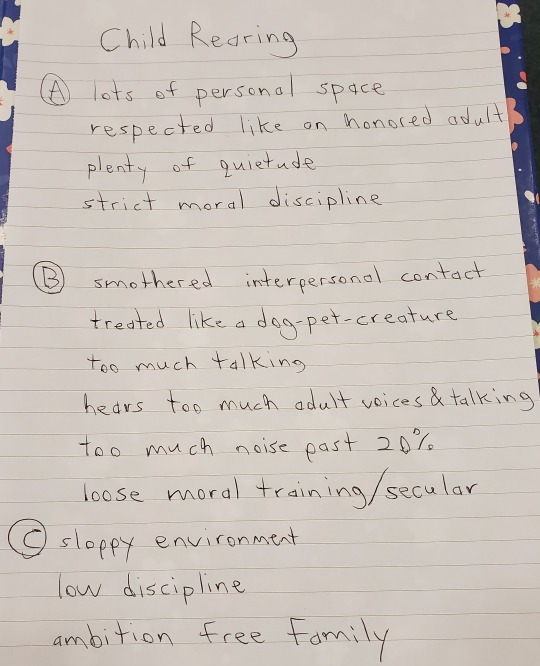 Child Rearing
Ⓐ lots of personal space
respected like an honored adult
plenty of quietude
strict moral discipline
Ⓑ smothered interpersonal contact
treated like a dog-pet-creature
too much talking
hears too much adult voices & talking
too much noise past 20%
loose moral training/secular
Ⓒ sloppy environment
low discipline
ambition free family